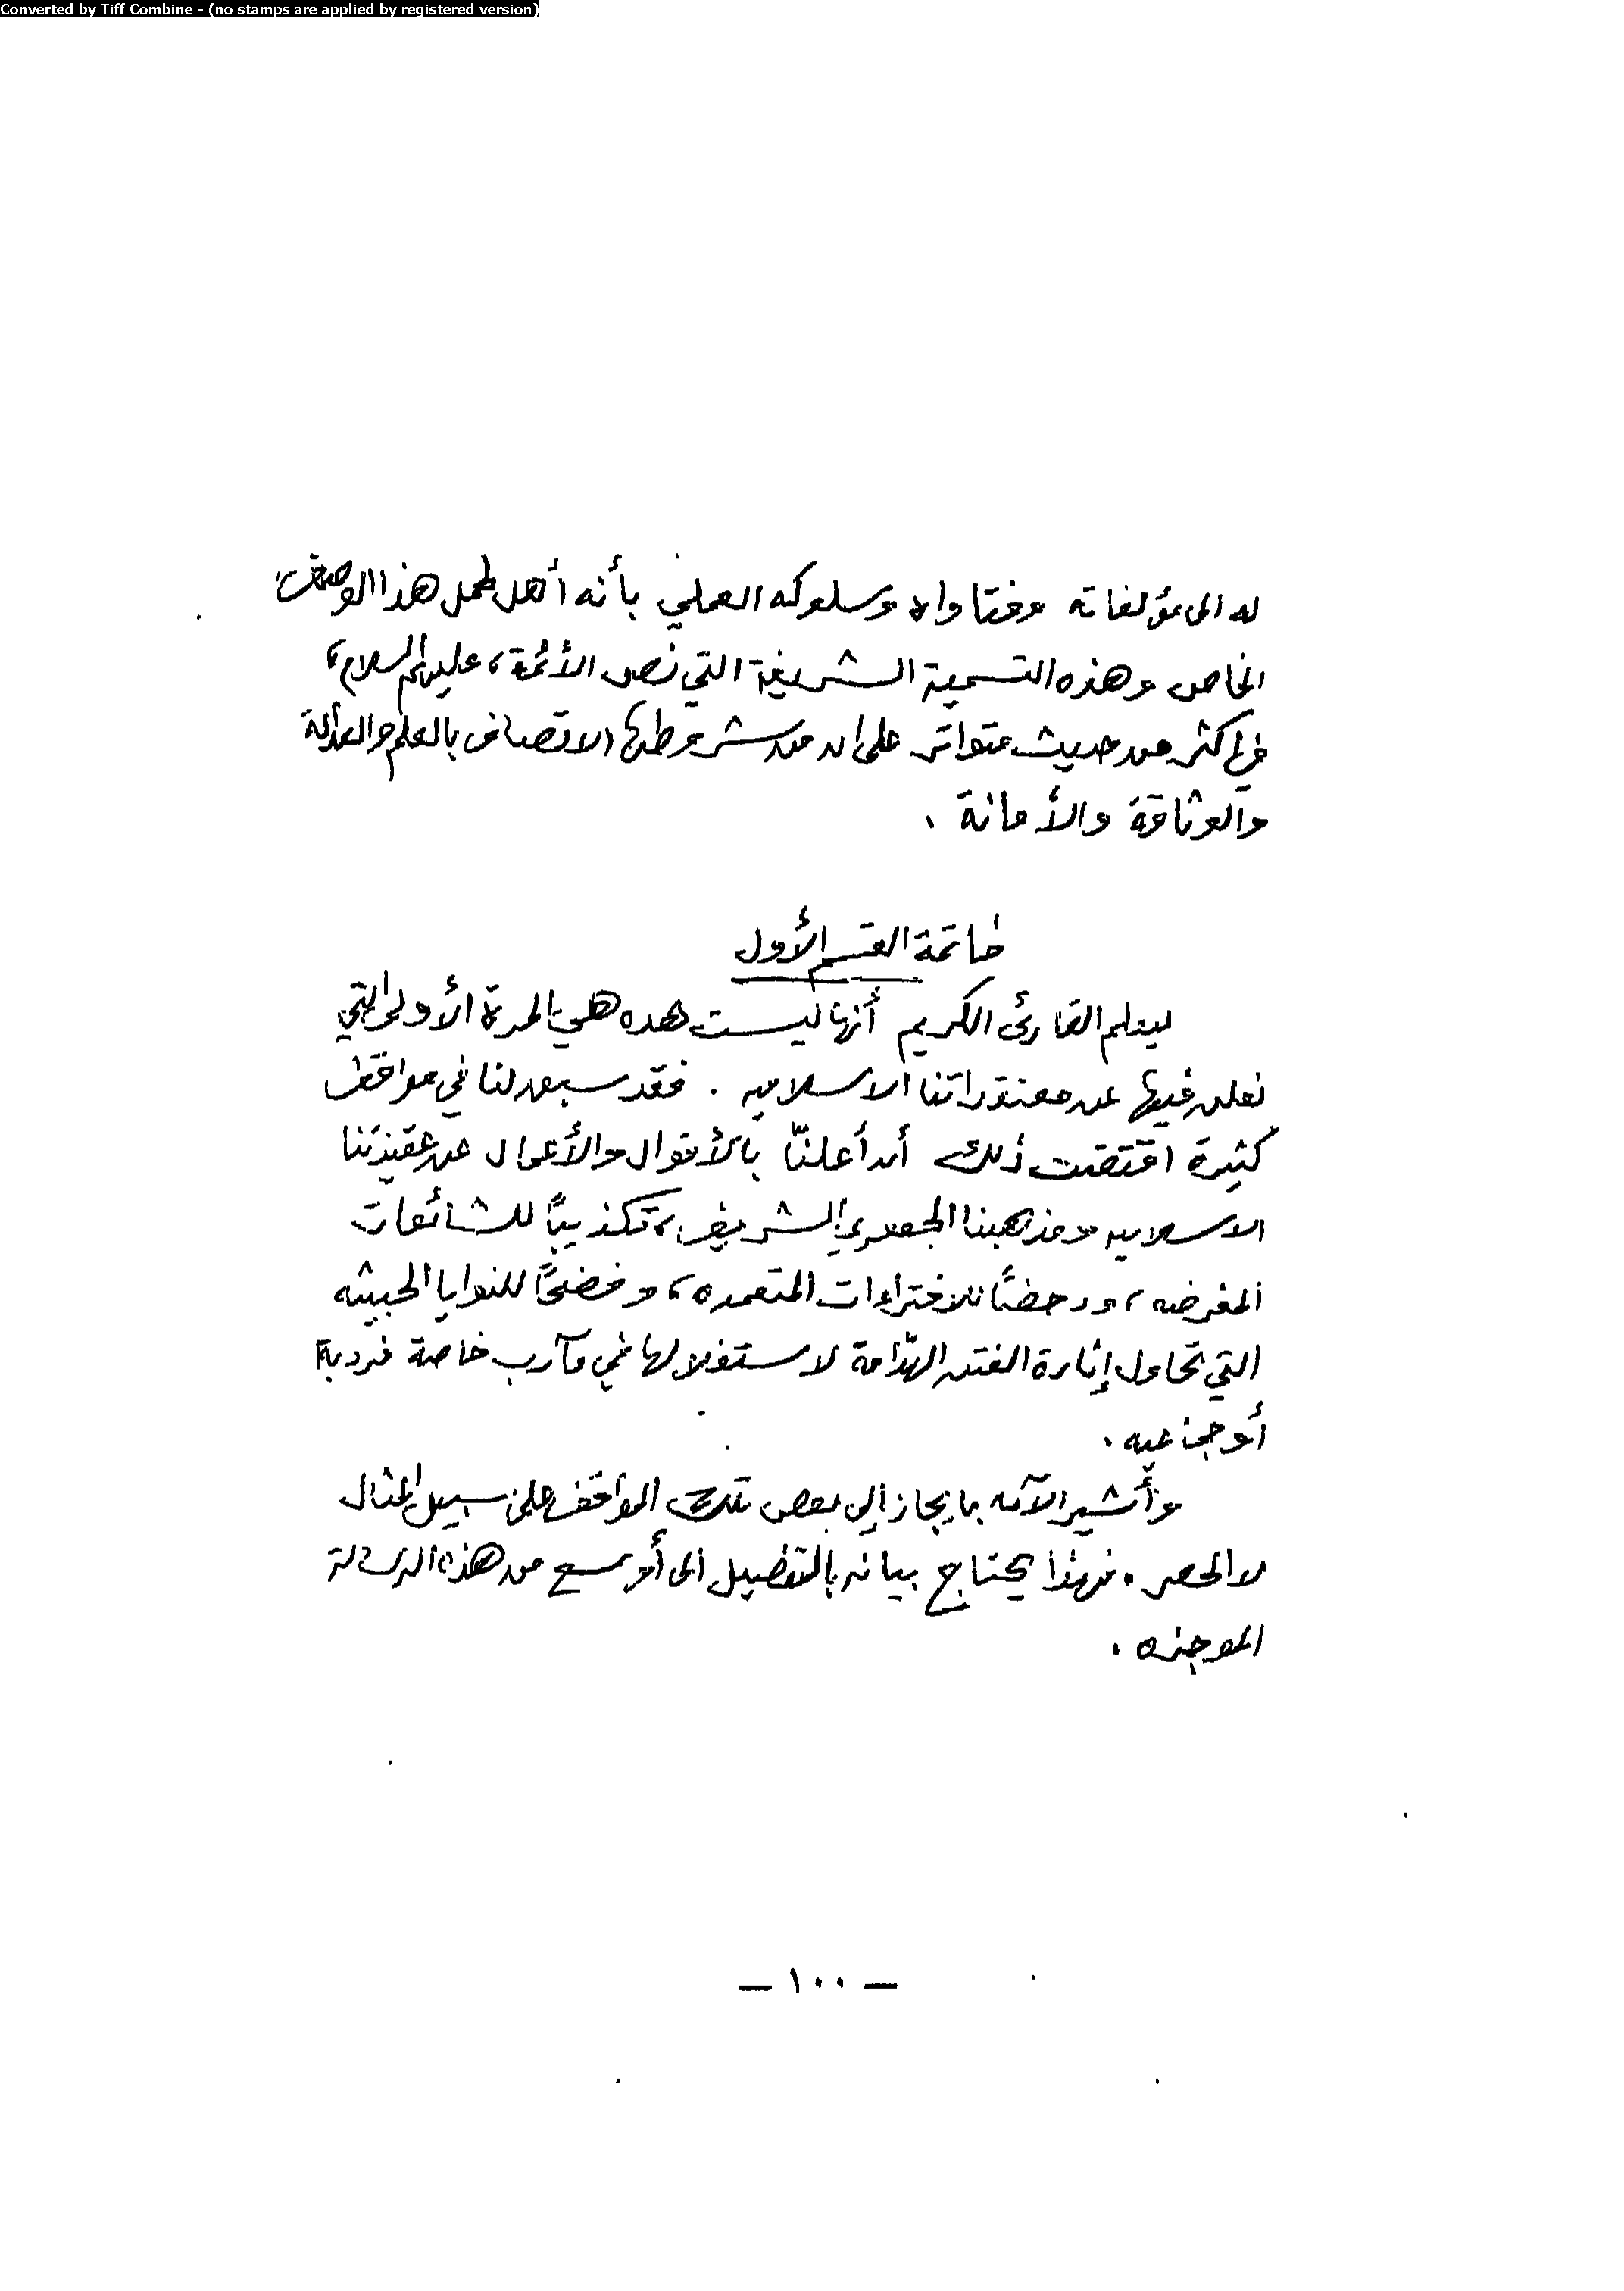 Converted by Tiff Combine - (no stamps are applied by registered version)
له الى مؤلفاته وفتاواه وسلوكه العملي بأنه أهل لحمل هذا الوصف
الخاص وهذه التسمية الشريفة التي نص الأئمة، عليهم السلام،
في اكثر من حديث متواتر على ان من شروطها الاتصاف بالعلم والعدالة
والوثاقة والأمانة .
خاتمة القسم الأول
ليعلم القارئ الكريم أنها ليست هذه هي المرة الأولى التي
نعلن فيها عن معتقداتنا الاسلاميه . فقد سبق لنا في مواقف
كثيرة اقتضت ذلك أن أعلنّا بالأقوال والأعمال عن عقيدتنا
الاسلاميه ومذهبنا الجعفري الشريف، تكذيباً للشائعات
المغرضه، ودحضاً للافتراءات المتعمده، وفضحاً للنوايا الخبيثه
التي تحاول إثارة الفتن الهدّامة لاستغلالها في مآرب خاصة فردية
أو جماعيه .
وأشير الآن بإيجاز إلى بعض تلك المواقف على سبيل المثال
لا الحصر . فهذا يحتاج بيانه بالتفصيل الى أوسع من هذه الرسالة
الموجزه .
— ١٠٠ —